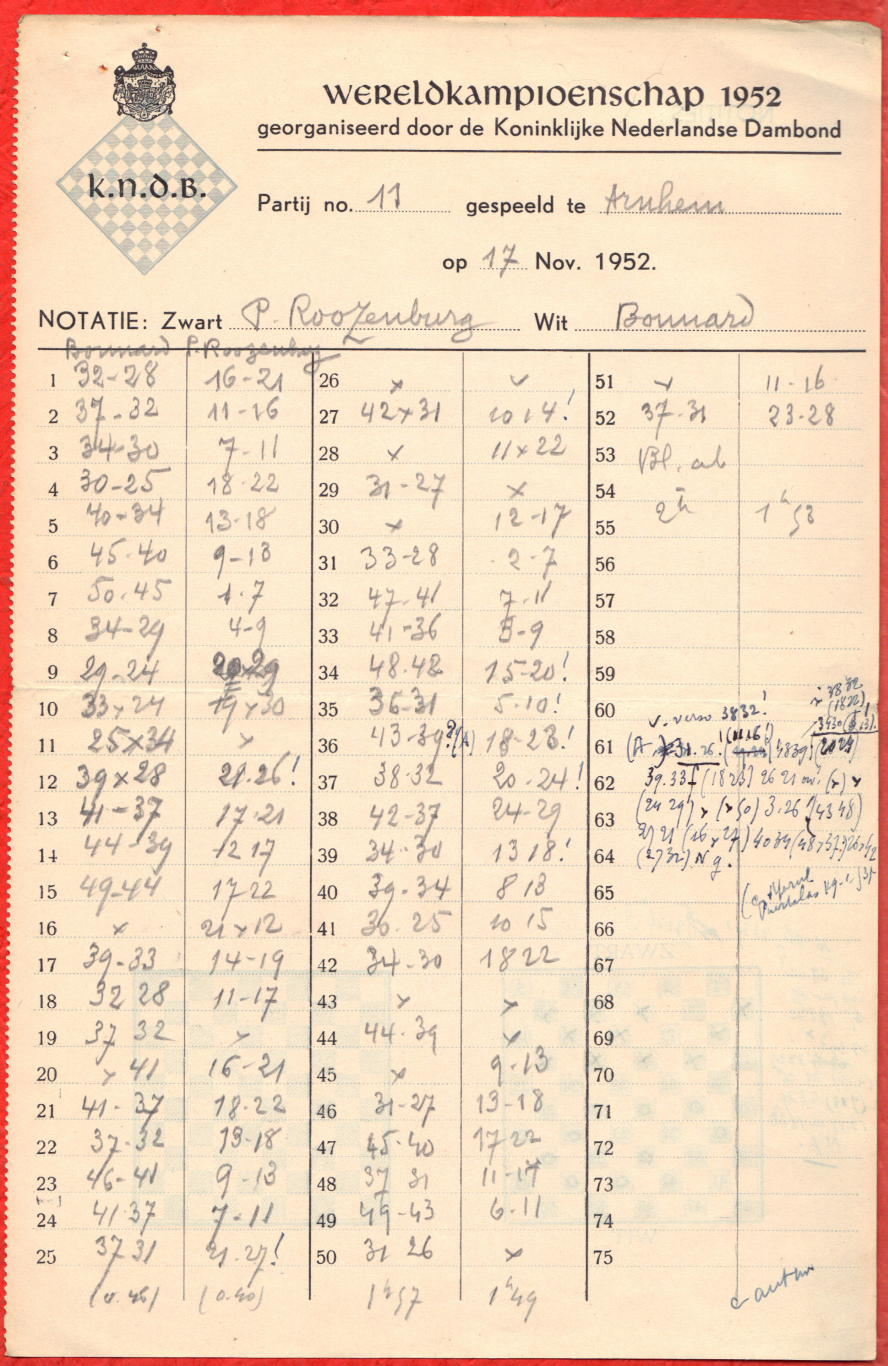 WERELDKAMPIOENSCHAP 1952
georganiseerd door de Koninklijke Nederlandse Dambond
K.N.D.B.
Partij no. 11 gespeeld te Arnhem
op 17 Nov. 1952.
NOTATIE: Zwart P. Roozenburg Wit Bonnard
Bonnard P. Roozenburg
1 32-28 16-21
2 37-32 11-16
3 34-30 7-11
4 30-25 18-22
5 40-34 13-18
6 45-40 9-13
7 50-45 1-7
8 34-29 4-9
9 29-24
10 33x24 19x30
11 25x34 x
12 39x28 21-26!
13 41-37 17-21
14 44-39 12 17
15 49-44 17-22
16 x 21x12
17 39-33 14-19
18 32 28 11-17
19 37 32 x
20 x 41 16-21
21 41-37 18-22
22 37-32 13-18
23 46-41 9-13
24 41-37 7-11
25 37 31 21-27!
(0.46) (0.40)
26 x x
27 42x31 10 14!
28 x 11x22
29 31-27 x
30 x 12-17
31 33-28 2-7
32 47-41 7-11
33 41-36 3-9
34 48-42 15-20!
35 36-31 5-10!
36 43-39? (A) 18-23!
37 38-32 20-24!
38 42-37 24-29
39 34-30 13 18!
40 39-34 8 13
41 30-25 10 15
42 34-30 18 22
43 x x
44 44-39 x
45 x 9-13
46 31-27 13-18
47 45-40 17-22
48 37 31 11-17
49 49-43 6-11
50 31 26 x
1h57 1h49
51 x 11-16
52 37-31 23-28
53 Bl. ab
54
55 2h 1h53
56
57
58
59
60 v. verso 3832!
61 (A 31.26! (1116!) 4839) (2024)
62 39.33 (1823) 26 21
63 (24 29) x (x50) 3.26 (4348)
64
65
66
67
68
69
70
71
72
73
74
75